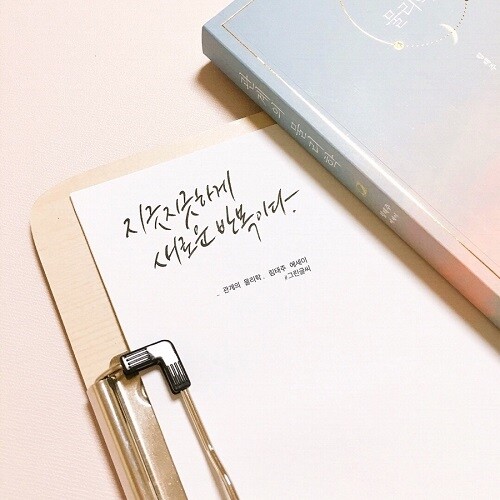 지긋지긋하게
새로운 반복이다.
- 관계의 물리학. 림태주 에세이
#그린글씨
관계의 물리학
물리